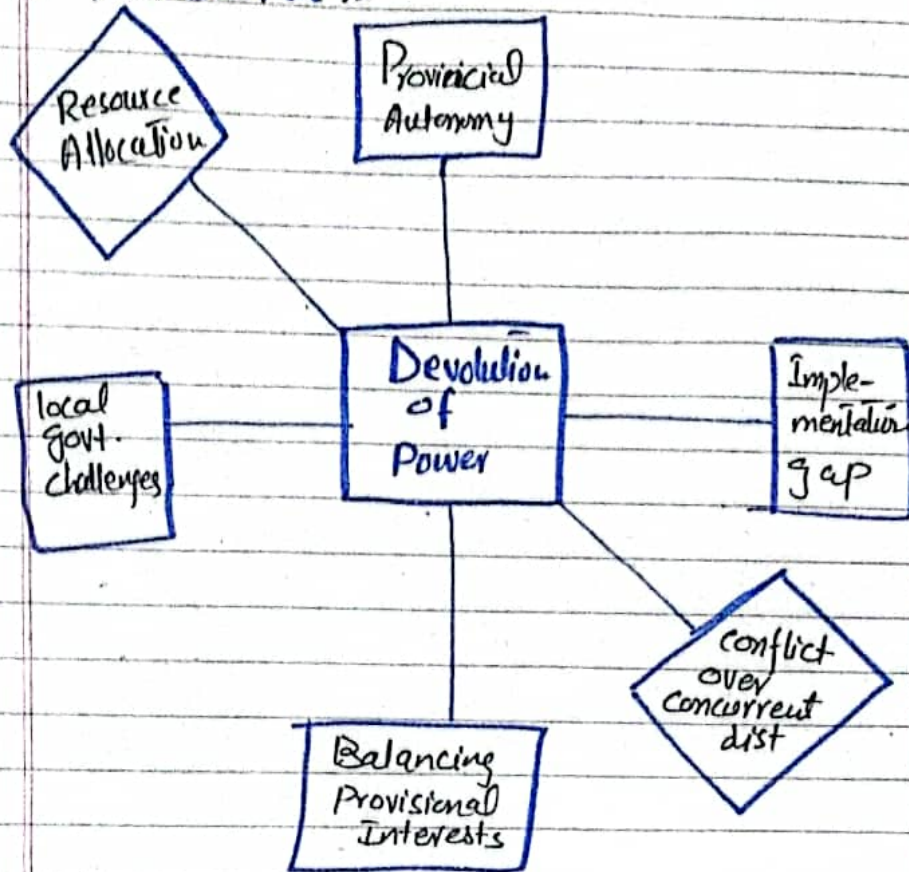 Resource
Allocation
Provinicial
Autonomy
Devolution
of
Power
local
govt.
challenges
Imple-
mentation
gap
Conflict
over
Concurrent
dist
Balancing
Provisional
Interests